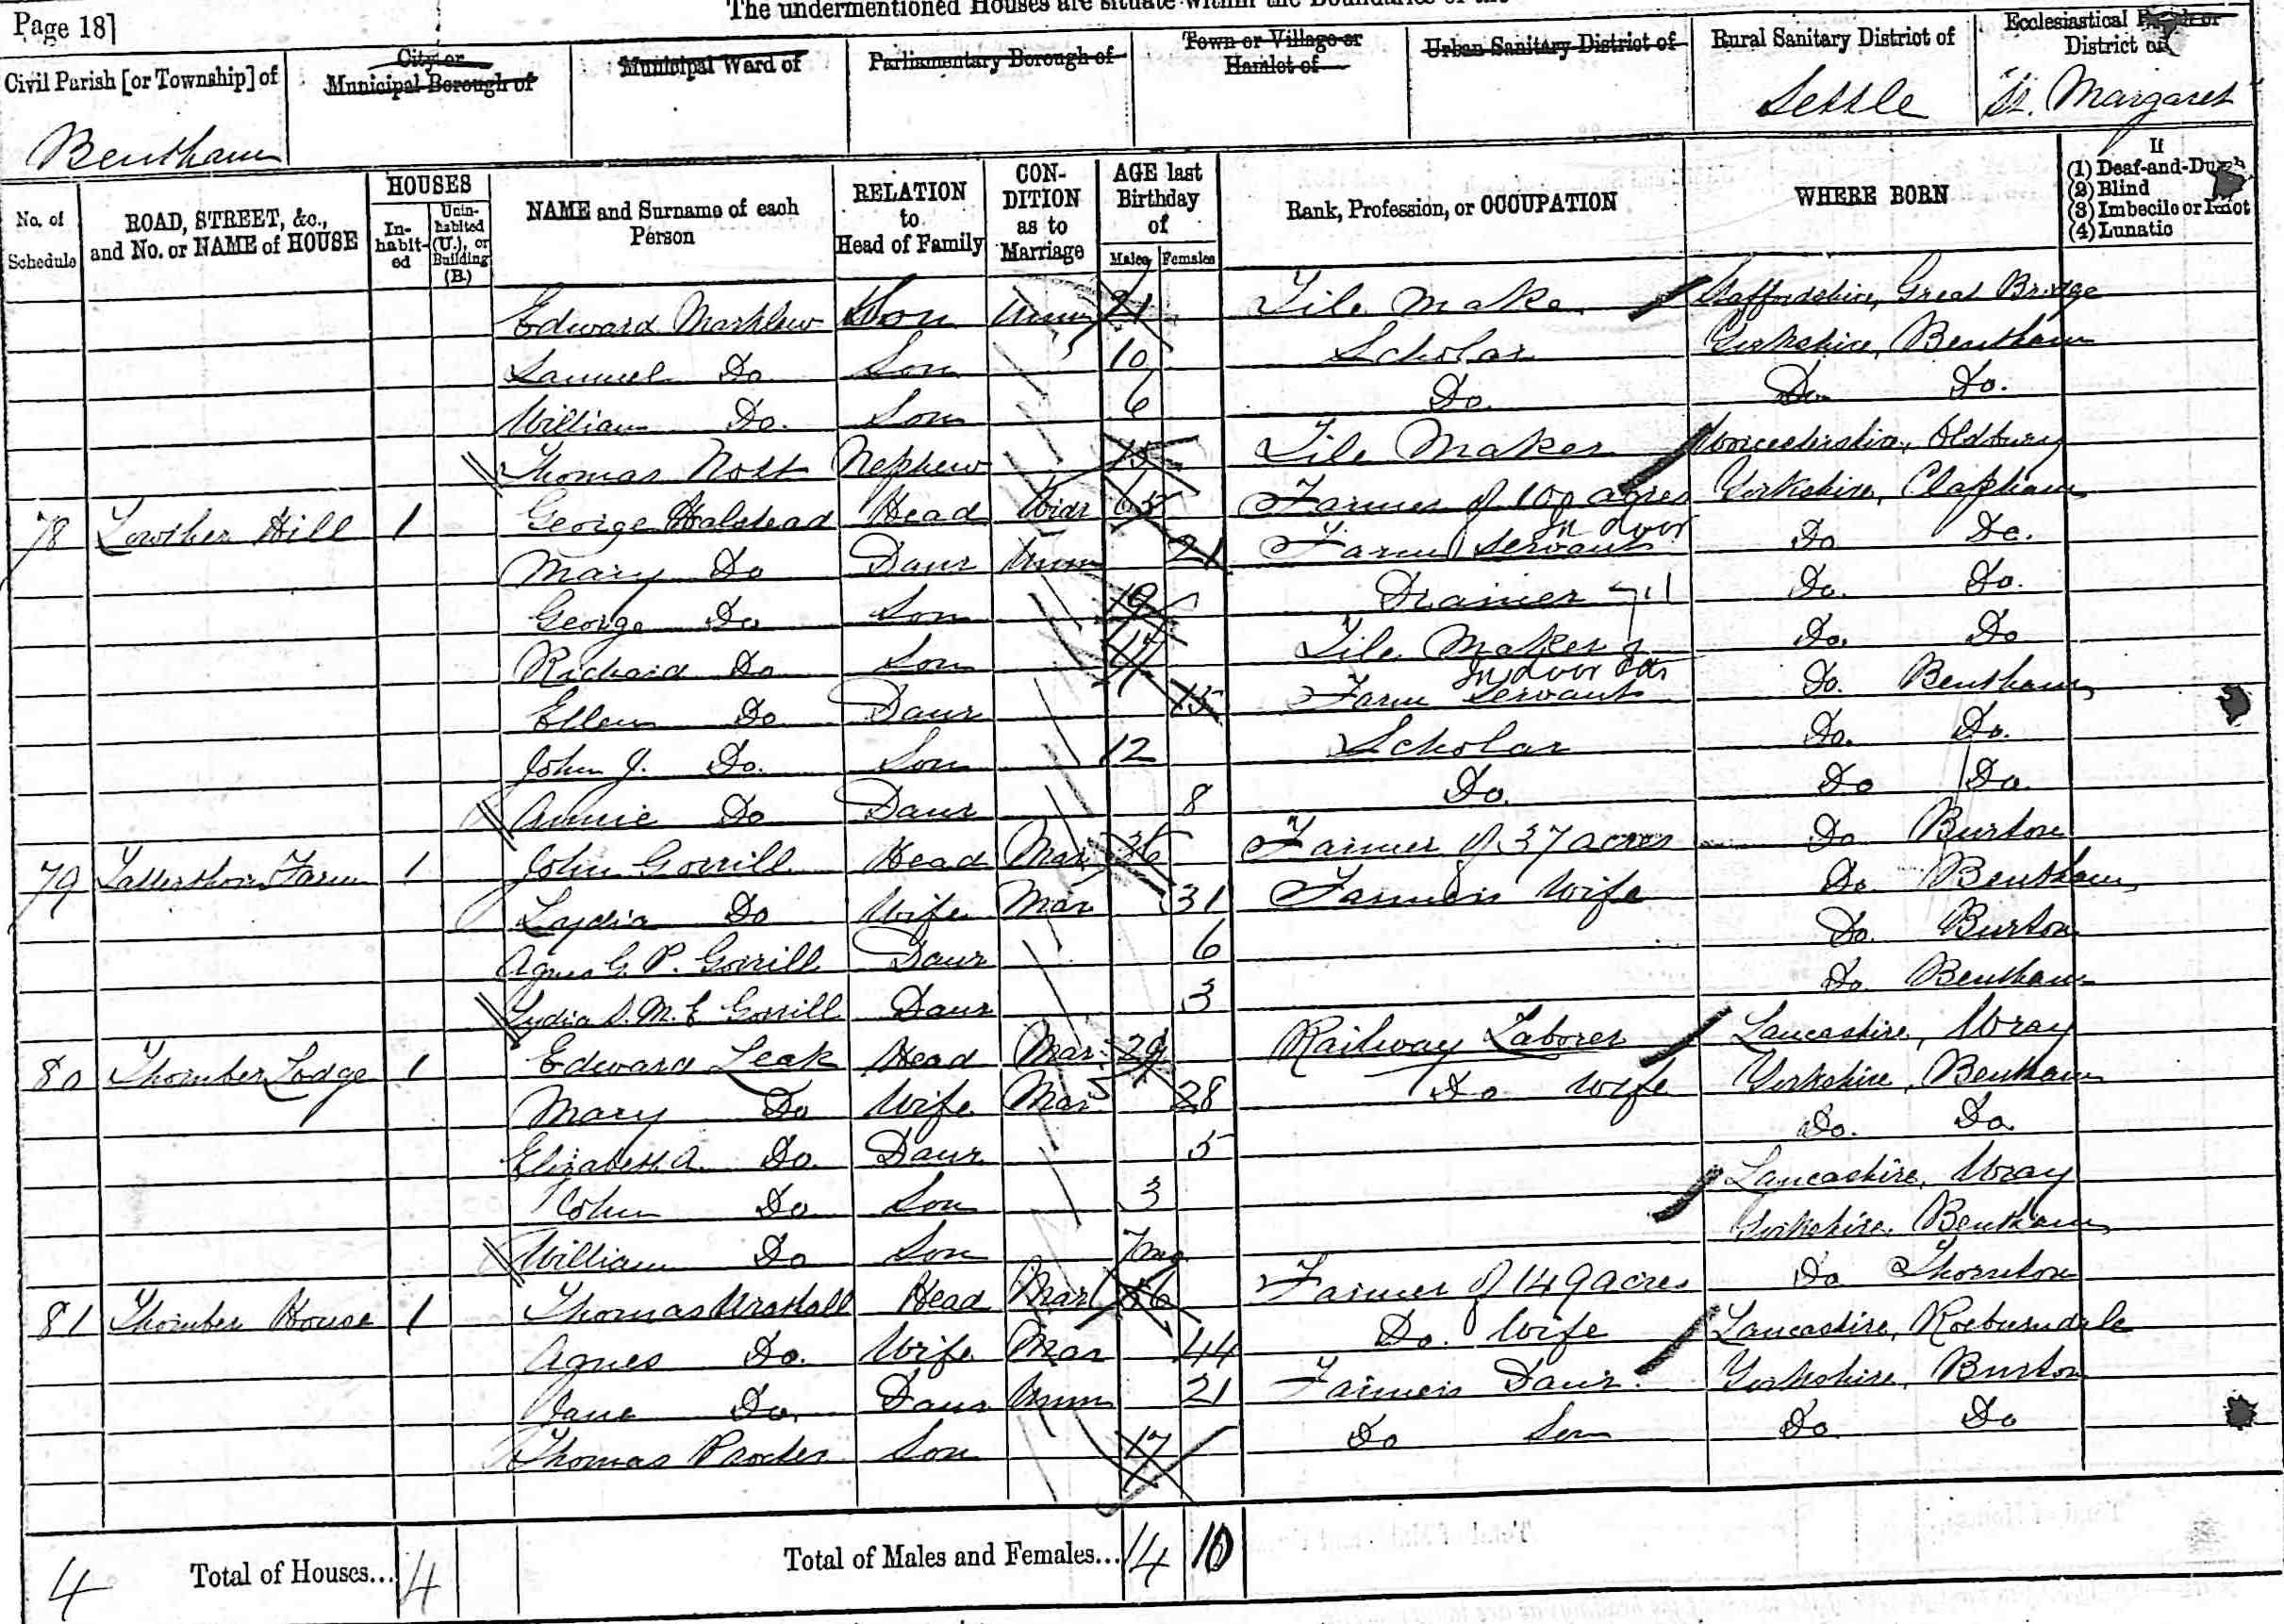 The undermentioned Houses are situate within the Boundaries of the
Page 18]
Civil Parish [or Township] of
City or Municipal Borough of
Municipal Ward of
Parliamentary Borough of
Town or Village or Hamlet of
Urban Sanitary District of
Rural Sanitary District of
Ecclesiastical Parish or District of
Bentham
Settle
St. Margaret
No. of Schedule
ROAD, STREET, &c., and No. or NAME of HOUSE
HOUSES
In-habit-ed
Unin-habited (U.), or Building (B.)
NAME and Surname of each Person
RELATION to Head of Family
CON-DITION as to Marriage
AGE last Birthday of
Males
Females
Rank, Profession, or OCCUPATION
WHERE BORN
If
(1) Deaf-and-Dumb
(2) Blind
(3) Imbecile or Idiot
(4) Lunatic
Edward Marklew Son Unm 21 Tile Maker Staffordshire, Great Bridge
Samuel Do Son 10 Scholar Yorkshire, Bentham
William Do. Son 6 Do. Do Do.
Thomas Nott Nephew 15 Tile Maker Worcestershire, Oldbury
78 Lowther Hill 1 George Halstead Head Widr 65 Farmer of 100 acres Yorkshire, Clapham
Mary Do Daur Unm 21 Farm Servant In door Do Do.
George Do Son 19 Drainer Do. Do.
Richard Do Son 17 Tile Maker Do. Do
Ellen Do Daur 15 Farm Servant In door Do. Bentham
John J. Do. Son 12 Scholar Do. Do.
Annie Do Daur 8 Do. Do Do.
79 Tatterthorn Farm 1 John Gorrill Head Mar 36 Farmer of 37 acres Do Burton
Lydia Do Wife Mar 31 Farmers Wife Do Bentham
Agnes G. P. Gorrill Daur 6 Do. Burton
Lydia S. M. E Gorrill Daur 3 Do. Bentham
80 Thornber Lodge 1 Edward Leak Head Mar. 29 Railway Laborer Lancashire, Wray
Mary Do Wife Mar. 28 Do Wife Yorkshire, Bentham
Elizabeth A. Do. Daur 5 Do. Do
John Do Son 3 Lancashire, Wray
William Do Son 7mo Yorkshire, Bentham
81 Thornber House 1 Thomas Kirkhall Head Mar 56 Farmer of 149 acres Do Thornton
Agnes Do. Wife Mar 44 Do. Wife Lancashire, Roeburndale
Jane Do. Daur Unm 21 Farmers Daur. Yorkshire, Burton
Thomas Procter Son 17 Do Son Do Do
4 Total of Houses... 4 Total of Males and Females... 14 10